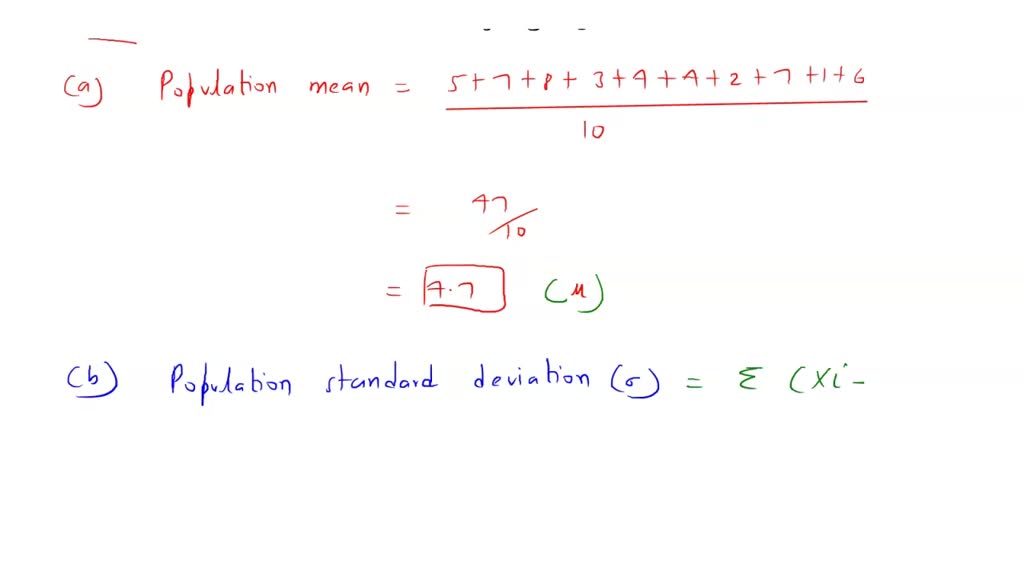 (a) Population mean = 5+7+8+3+4+4+2+7+1+6
10
= 47/10
= 4.7 (μ)
(b) Population standard deviation (σ) = Σ (Xi -